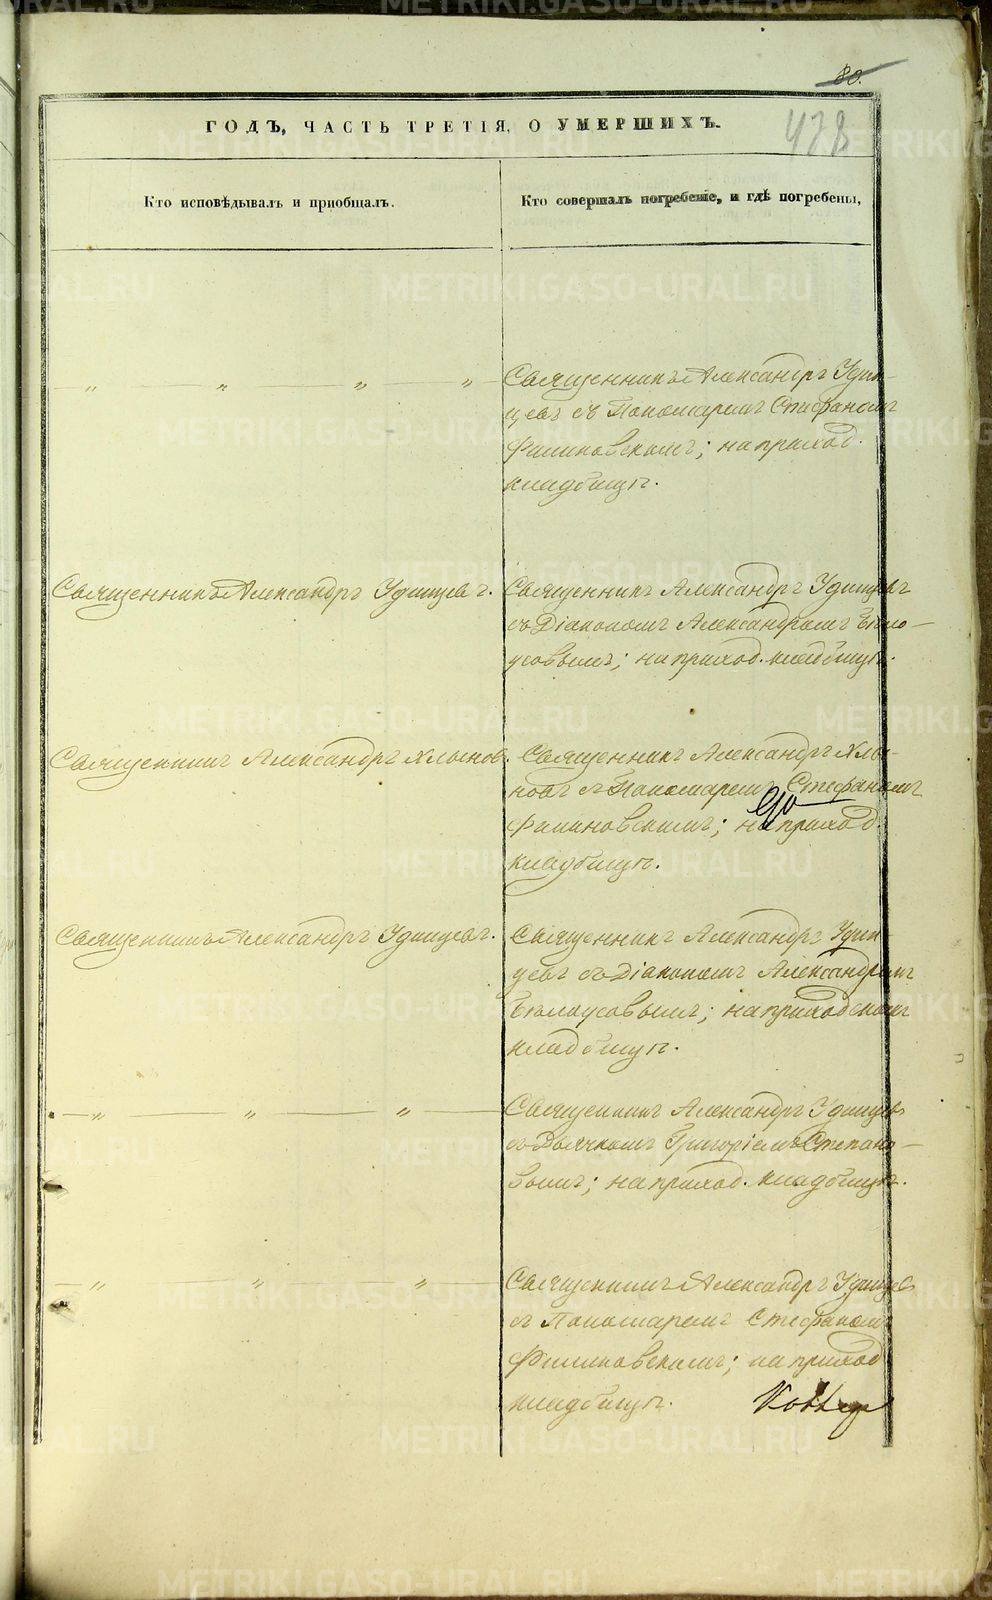 80.
478
ГОДЪ, ЧАСТЬ ТРЕТІЯ, О УМЕРШИХЪ.
Кто исповѣдывалъ и пріобщалъ.
Кто совершалъ погребеніе, и гдѣ погребены,
— „ „ „ „ —
Священникъ Александръ Удин-
цевъ съ Пономаремъ Стефаномъ
Филиновскимъ; на приход.
кладбищѣ.
Священникъ Александръ Удинцевъ.
Священникъ Александръ Удинцевъ
съ Діакономъ Александромъ Бѣло-
усовымъ; на приход. кладбищѣ.
Священникъ Александръ Хлыновъ.
Священникъ Александръ Хлы-
новъ съ Пономаремъ Стефаномъ
Филиновскимъ; на приход.
кладбищѣ.
Священникъ Александръ Удинцевъ.
Священникъ Александръ Удин
цевъ съ Діакономъ Александромъ
Бѣлоусовымъ; на приходскомъ
кладбищѣ.
— „ — „ — „ —
Священникъ Александръ Удинцевъ
съ Дьячкомъ Григоріемъ Степано-
вымъ; на приход. кладбищѣ.
— „ — „ — „ —
Священникъ Александръ Удинцевъ
съ Пономаремъ Стефаномъ
Филиновскимъ; на приход
кладбищѣ.
METRIKI.GASO-URAL.RU